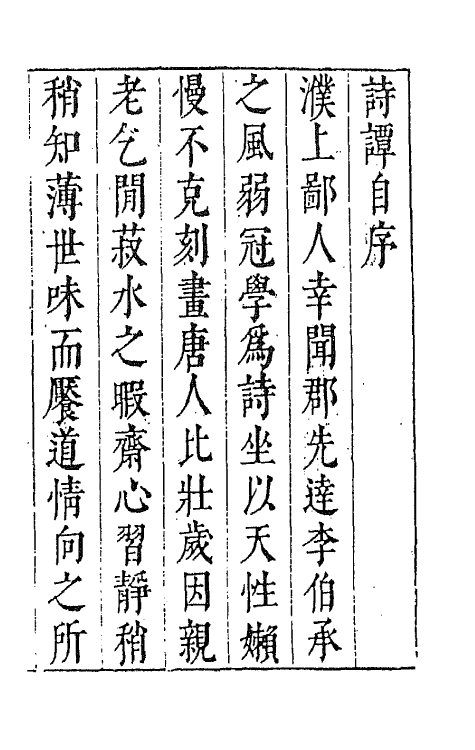 詩譚自序
濮上鄙人幸聞郡先達李伯承
之風弱冠學爲詩坐以天性嬾
慢不克刻畫唐人比壯歲因親
老乞閒菽水之暇齋心習靜稍
稍知薄世味而饜道情向之所